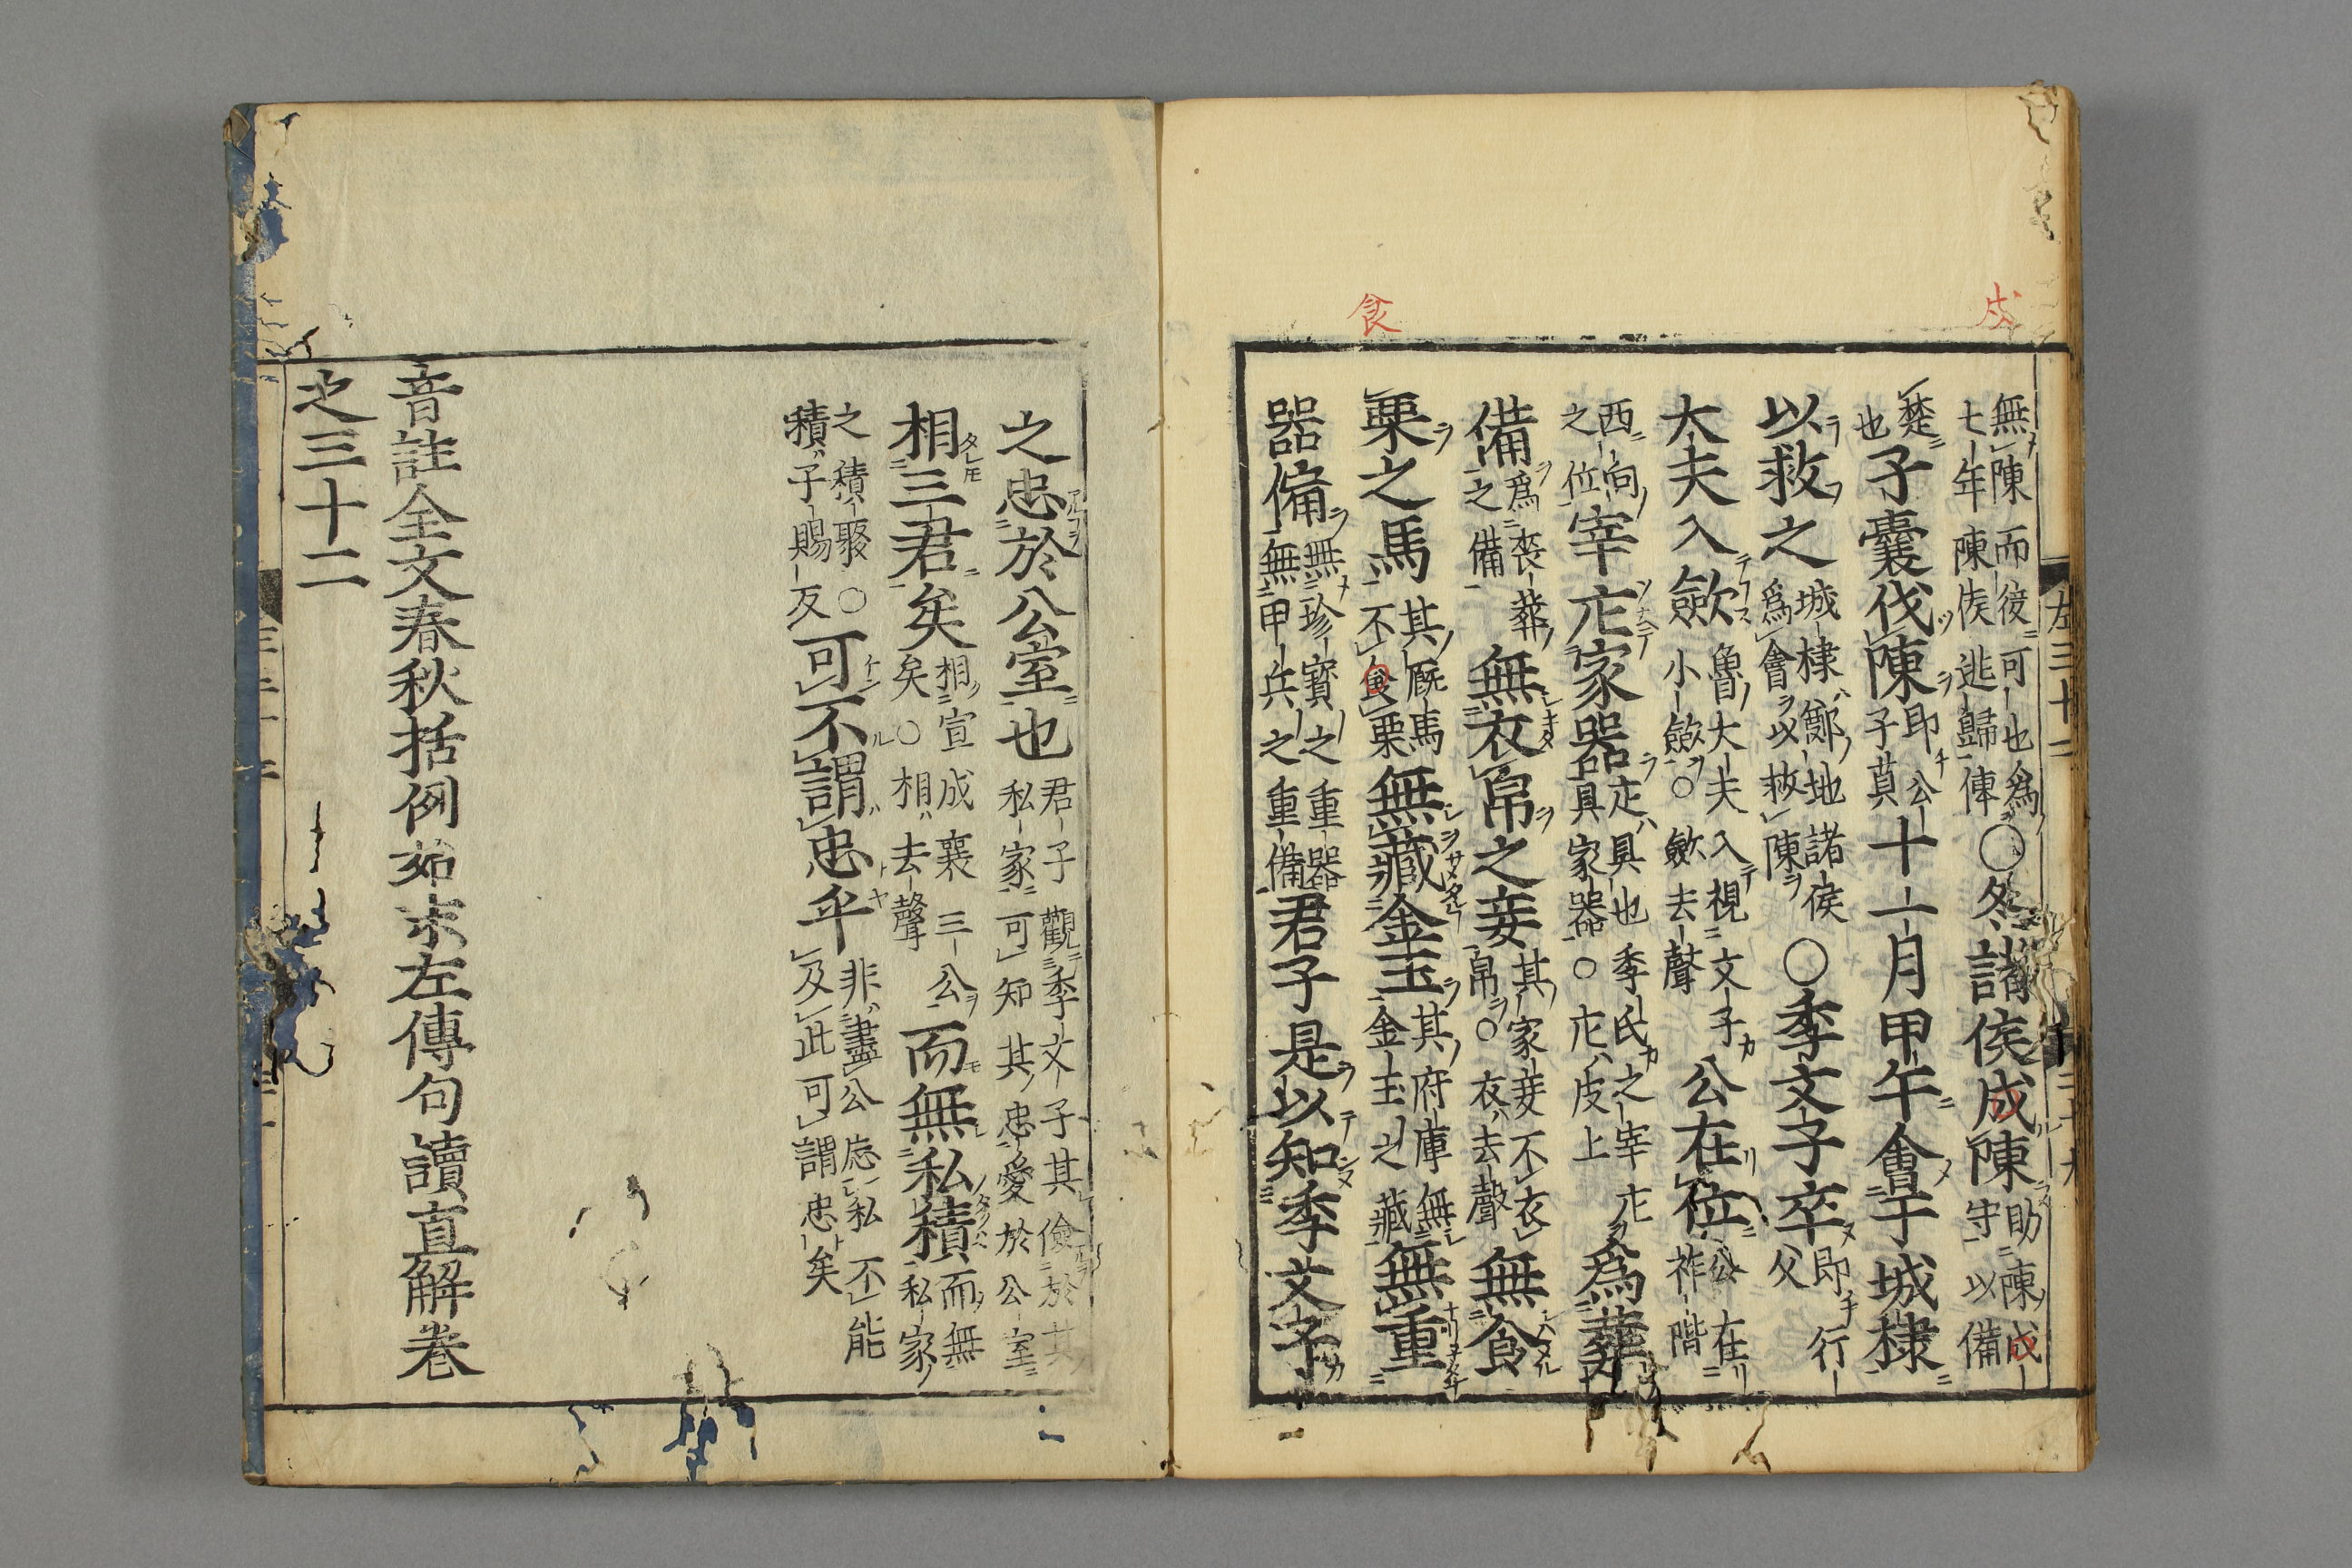 戍
食
無陳而後可也爲
七年陳侯逃歸傳
○冬諸侯戍陳
助陳戍
守以備
楚
也
子囊伐陳
即公
子貞
十一月甲午會于城棣
以救之
城棣鄭地諸侯
爲會以救陳
○季文子卒
即行
父
大夫入斂
魯大夫入視文子
小斂○斂去聲
公在位
公在
祚階
西向
之位
宰庀家器
庀具也季氏之宰庀
具家器○庀皮上
爲葬
備
爲喪葬
之備
無衣帛之妾
其家妾不衣
帛○衣去聲
無食
粟之馬
其廐馬
不食粟
無藏金玉
其府庫無
金玉之藏
無重
器備
無珍寳之重器
無甲兵之重備
君子是以知季文子
之忠於公室也
君子觀季文子其儉於其
私家可知其忠愛於公室
相三君矣
相宣成襄三公
矣○相去聲
而無私積
而無
私家
之積聚○
積子賜反
可不謂忠乎
非盡公忘私不能
及此可謂忠矣
音註全文春秋括例始末左傳句讀直解卷
之三十二
左三十二